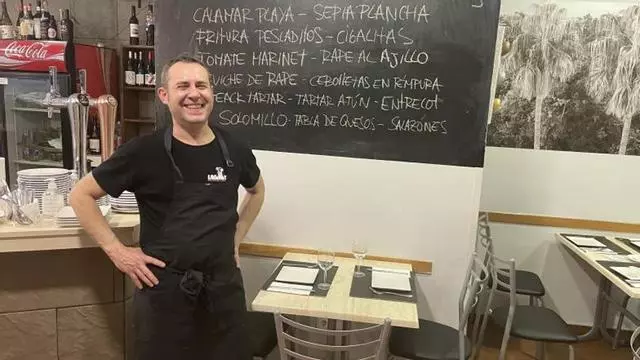 CALAMAR PLAYA - SEPIA PLANCHA
FRITURA PESCADITOS - CIGALITAS
TOMATE MARINET - RAPE AL AJILLO
CEVICHE DE RAPE - CEBOLLETAS EN TEMPURA
STEACK TARTAR - TARTAR ATÚN - ENTRECOT
SOLOMILLO - TABLA DE QUESOS - SALAZONES
Coca-Cola